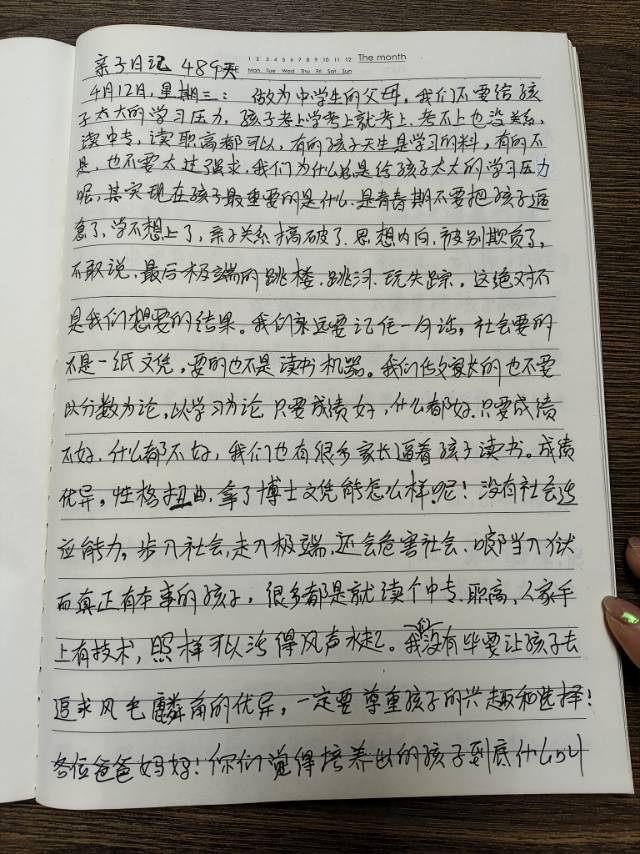 亲子日记 489天
1 2 3 4 5 6 7 8 9 10 11 12 The month
Mon Tue Wed Thu Fri Sat Sun
4月12日,星期三: 做为中学生的父母,我们不要给孩
子太大的学习压力,孩子考上学考上就考上,考不上也没关系,
读中专,读职高都可以,有的孩子天生是学习的料,有的不
是,也不要太过强求,我们为什么总是给孩子太大的学习压力
呢,其实现在孩子最重要的是什么,是青春期不要把孩子逼
急了,学不想上了,亲子关系搞破了,思想内向,被别欺负了,
不敢说,最后极端的跳楼,跳河,玩失踪,这绝对不
是我们想要的结果。我们永远要记住一句话,社会要的
不是一纸文凭,要的也不是读书机器。我们做家长的也不要
以分数为论,以学习为论只要成绩好,什么都好,只要成绩
不好,什么都不好,我们也有很多家长逼着孩子读书。成绩
优异,性格扭曲,拿了博士文凭能怎么样呢!没有社会适
应能力,步入社会,走入极端,还会危害社会,啷当入狱
而真正有本事的孩子,很多都是就读个中专,职高,人家手
上有技术,照样可以活得风声水起。我们没有毕要让孩子去
追求风毛麟角的优异,一定要尊重孩子的兴趣和选择!
各位爸爸妈妈好!你们觉得培养出的孩子到底什么叫